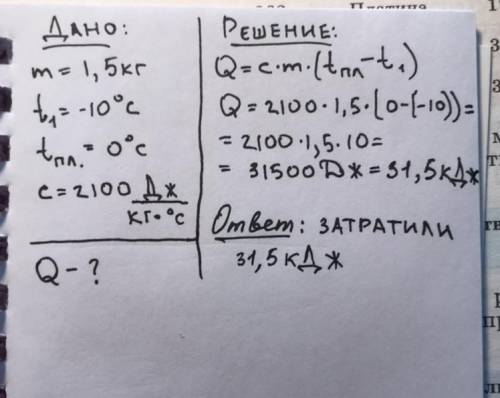 Дано:
m = 1,5кг
t₁ = -10°C
tпл. = 0°C
c = 2100 Дж/кг·°C
Q - ?
Решение:
Q = c·m·(tпл - t₁)
Q = 2100·1,5·(0-(-10)) =
= 2100·1,5·10 =
= 31500 Дж = 31,5 кДж
Ответ: затратили
31,5 кДж